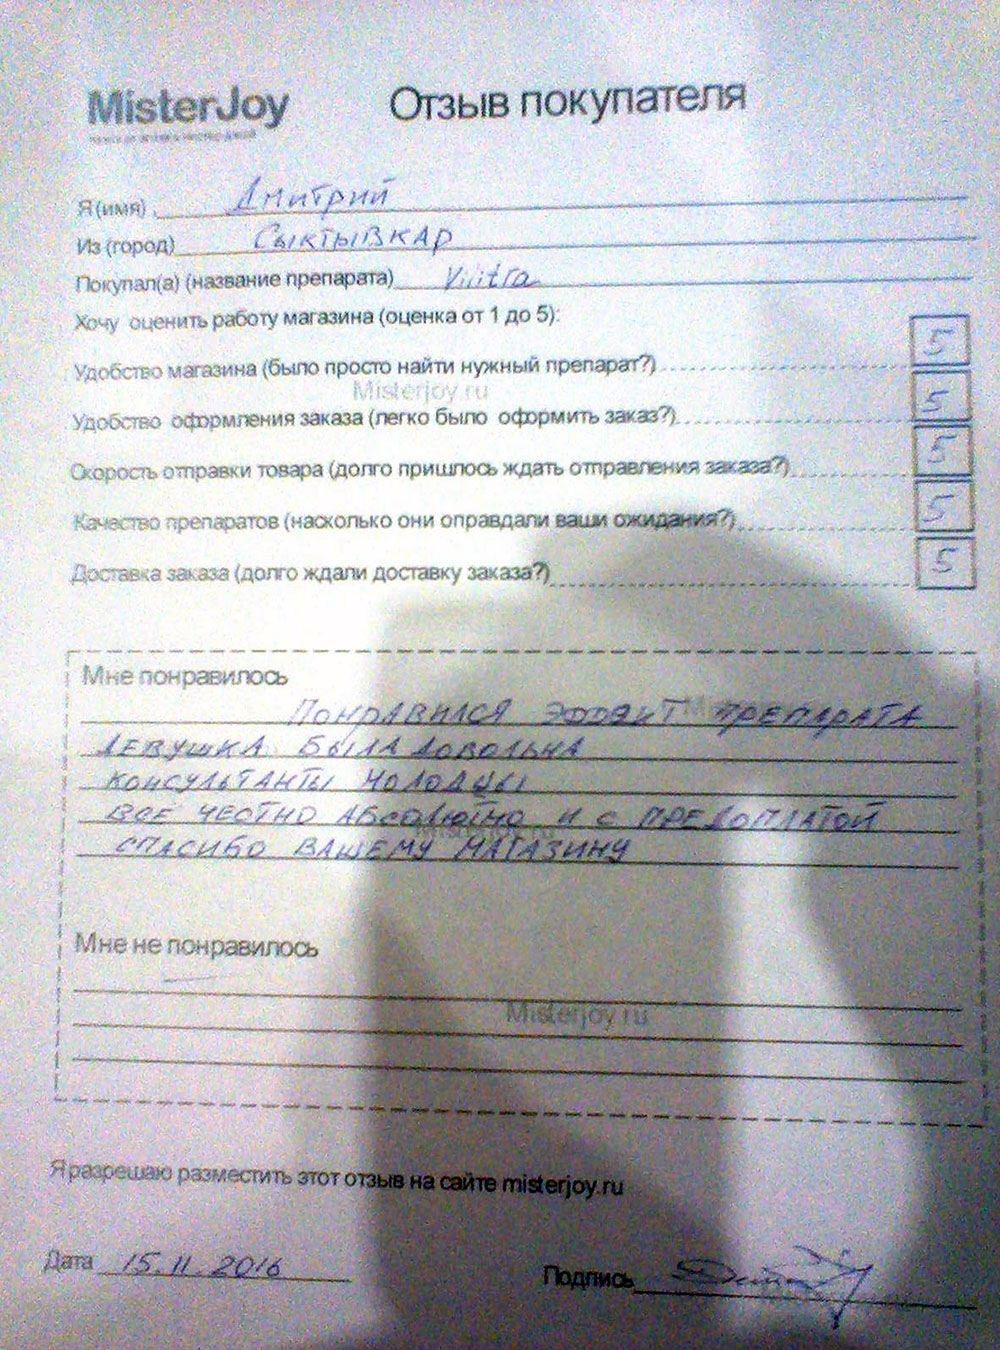 MisterJoy
Отзыв покупателя
Я (имя) , Дмитрий
Из (город) Сыктывкар
Покупал(а) (название препарата) Vilitra
Хочу оценить работу магазина (оценка от 1 до 5):
Удобство магазина (было просто найти нужный препарат?) 5
Misterjoy.ru
Удобство оформления заказа (легко было оформить заказ?) 5
Скорость отправки товара (долго пришлось ждать отправления заказа?) 5
Качество препаратов (насколько они оправдали ваши ожидания?) 5
Доставка заказа (долго ждали доставку заказа?) 5
Мне понравилось
ПОНРАВИЛСЯ ЭФФЭКТ ПРЕПАРАТА
ДЕВУШКА БЫЛА ДОВОЛЬНА
КОНСУЛЬТАНТЫ МОЛОДЦЫ
ВСЕ ЧЕСТНО АБСОЛЮТНО И С ПРЕДОПЛАТОЙ
Misterjoy.ru
СПАСИБО ВАШЕМУ МАГАЗИНУ
Мне не понравилось
—
Misterjoy.ru
Я разрешаю разместить этот отзыв на сайте misterjoy.ru
Дата 15.11.2016
Подпись